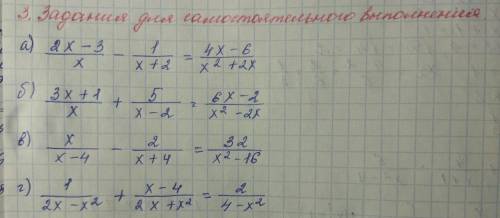 3. Задания для самостоятельного выполнения
а) (2x - 3)/x - 1/(x + 2) = (4x - 6)/(x² + 2x)
б) (3x + 1)/x + 5/(x - 2) = (6x - 2)/(x² - 2x)
в) x/(x - 4) - 2/(x + 4) = 32/(x² - 16)
г) 1/(2x - x²) + (x - 4)/(2x + x²) = 2/(4 - x²)